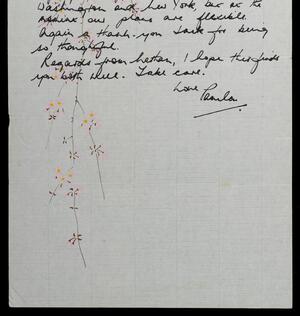 Washington and New York, but at the
moment our plans are flexible.
Again a thank-you Jack for being
so thoughtful.
Regards from Nathan, I hope this finds
you both well. Take care.
Love Pamela.